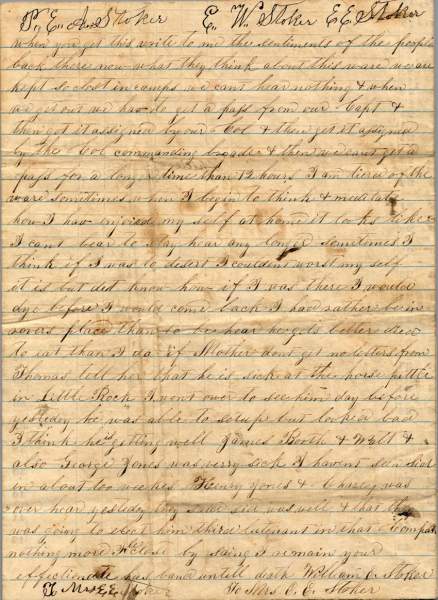 P,, E,, A,, Stoker E,, W,, Stoker E E Stoker
when you get this write to me the sentiments of the people
back there now what they think about this ware we are
kept so clost in camps we cant hear nothing & when
we get out we hav to get a pass from our Capt &
then got it assigned by our Col & then get it assigned
by the Col commanding brigade & then we cant get a
pass for a longer time than 12 hours I am tierd of the
ware sometimes when I begin to think & meditate
how I hav injoied my self at home it looks like
I cant bear to stay hear any longer sometimes I
think if I was to desert I couldent worst my self
it is but dit know how if I was there I would
dye before I would come back I had rather be in
rovers place than to be hear he gets better diet
to eat than I do if Mother dont get no letters from
Thomas tell her that he is sick at the horse pittle
in Little Rock I went over to see him day before
yesterdy he was able to set up but looked bad
I think he is getting well James Booth & Walt &
also George Jones was verry sick I havent seen
in about too weakes Henry Jones & Charley was
over hear yesterdy they was well & that they
was going to elect him third lieutenant in that Compan
nothing more I close by saing I remain your
effectionate husband untill death William E Stoker
To Mrs E. E. Stoker